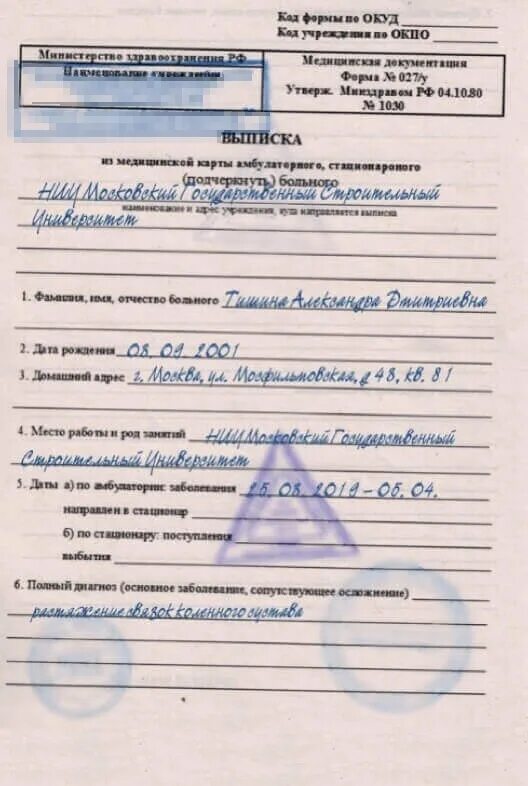 Код формы по ОКУД
Код учреждения по ОКПО
Министерство здравоохранения РФ
Наименование учреждения
Медицинская документация
Форма № 027/у
Утверж. Минздравом РФ 04.10.80
№ 1030
ВЫПИСКА
из медицинской карты амбулаторного, стационароного
(подчеркнуть) больного
НИУ Московский Государственный Строительный
наименование и адрес учреждения, куда направляется выписка
Университет
1. Фамилия, имя, отчество больного Тишина Александра Дмитриевна
2. Дата рождения 08. 09. 2001
3. Домашний адрес г. Москва, ул. Мосфильмовская, д 48, кв. 81
4. Место работы и род занятий НИУ Московский Государственный
Строительный Университет
5. Даты а) по амбулатории: заболевания 25. 08. 2019 - 05. 04.
направлен в стационар
б) по стационару: поступления
выбытия
6. Полный диагноз (основное заболевание, сопутствующее осложнение)
растяжение связок коленного сустава